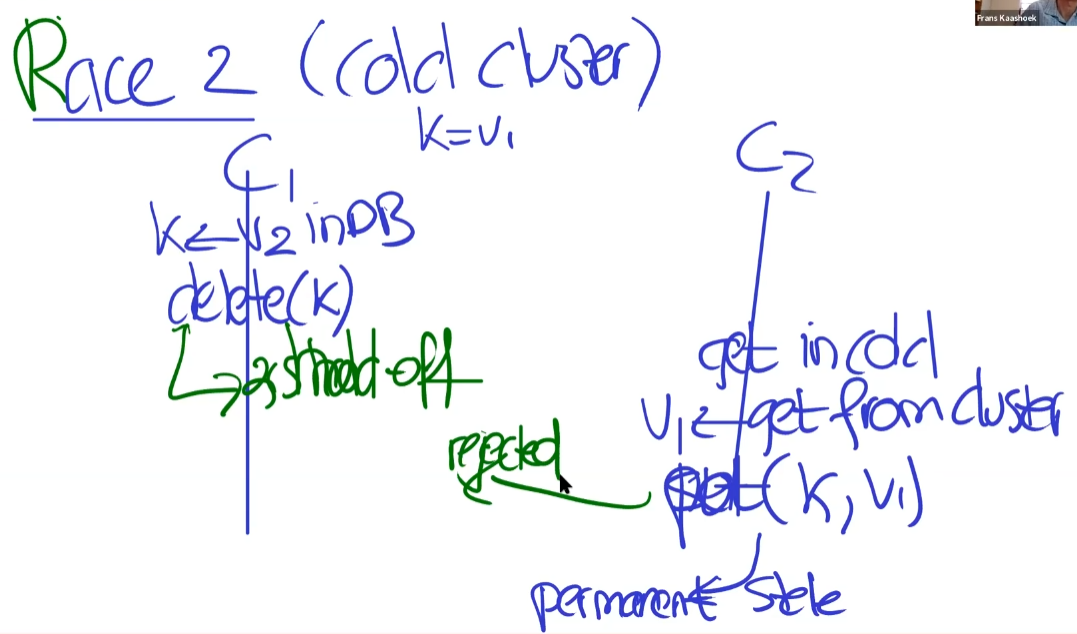 Frans Kaashoek
Race 2 (cold cluster)
k=v1
C1
C2
k←v2 in DB
delete(k)
hold-off
get in cold
v1←get from cluster
rejected
(k, v1)
permanent stale